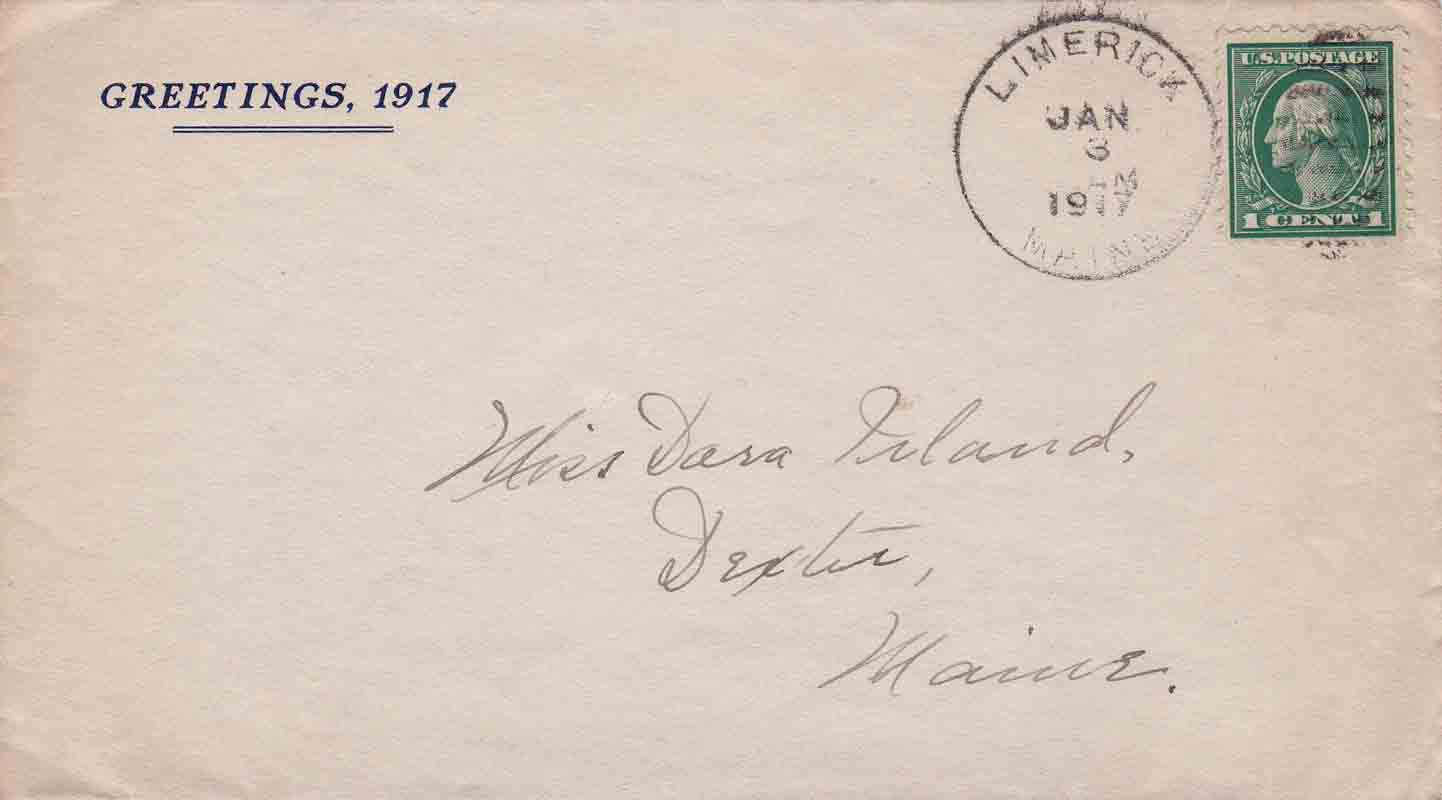 GREETINGS, 1917
LIMERICK
JAN
3
M
1917
MAINE
U.S. POSTAGE
1 CENT 1
Miss Dora Ireland,
Dexter,
Maine.